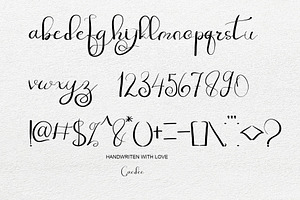 abcdefghijklmnopqrstu
vwxyz 1234567890
!@#$%^&*()+=-[]\:;"'<>?
HANDWRITEN WITH LOVE